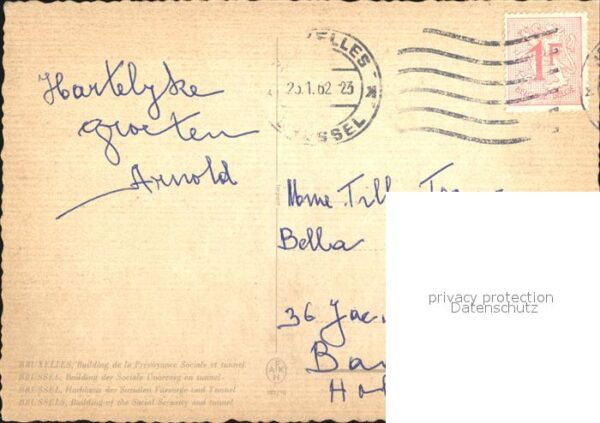 Hartelyke
groeten
Arnold
BRUXELLES
25.1.62 - 23
BRUSSEL
1F
Mme. Till
Bella
36 Jac
privacy protection
Datenschutz
BRUXELLES, Building de la Prévoyance Sociale et tunnel
BRUSSEL, Building der Sociale Voorzorg en tunnel
BRUSSEL, Hochhaus der Sozialen Fürsorge und Tunnel
BRUSSELS, Building of the Social Security and tunnel